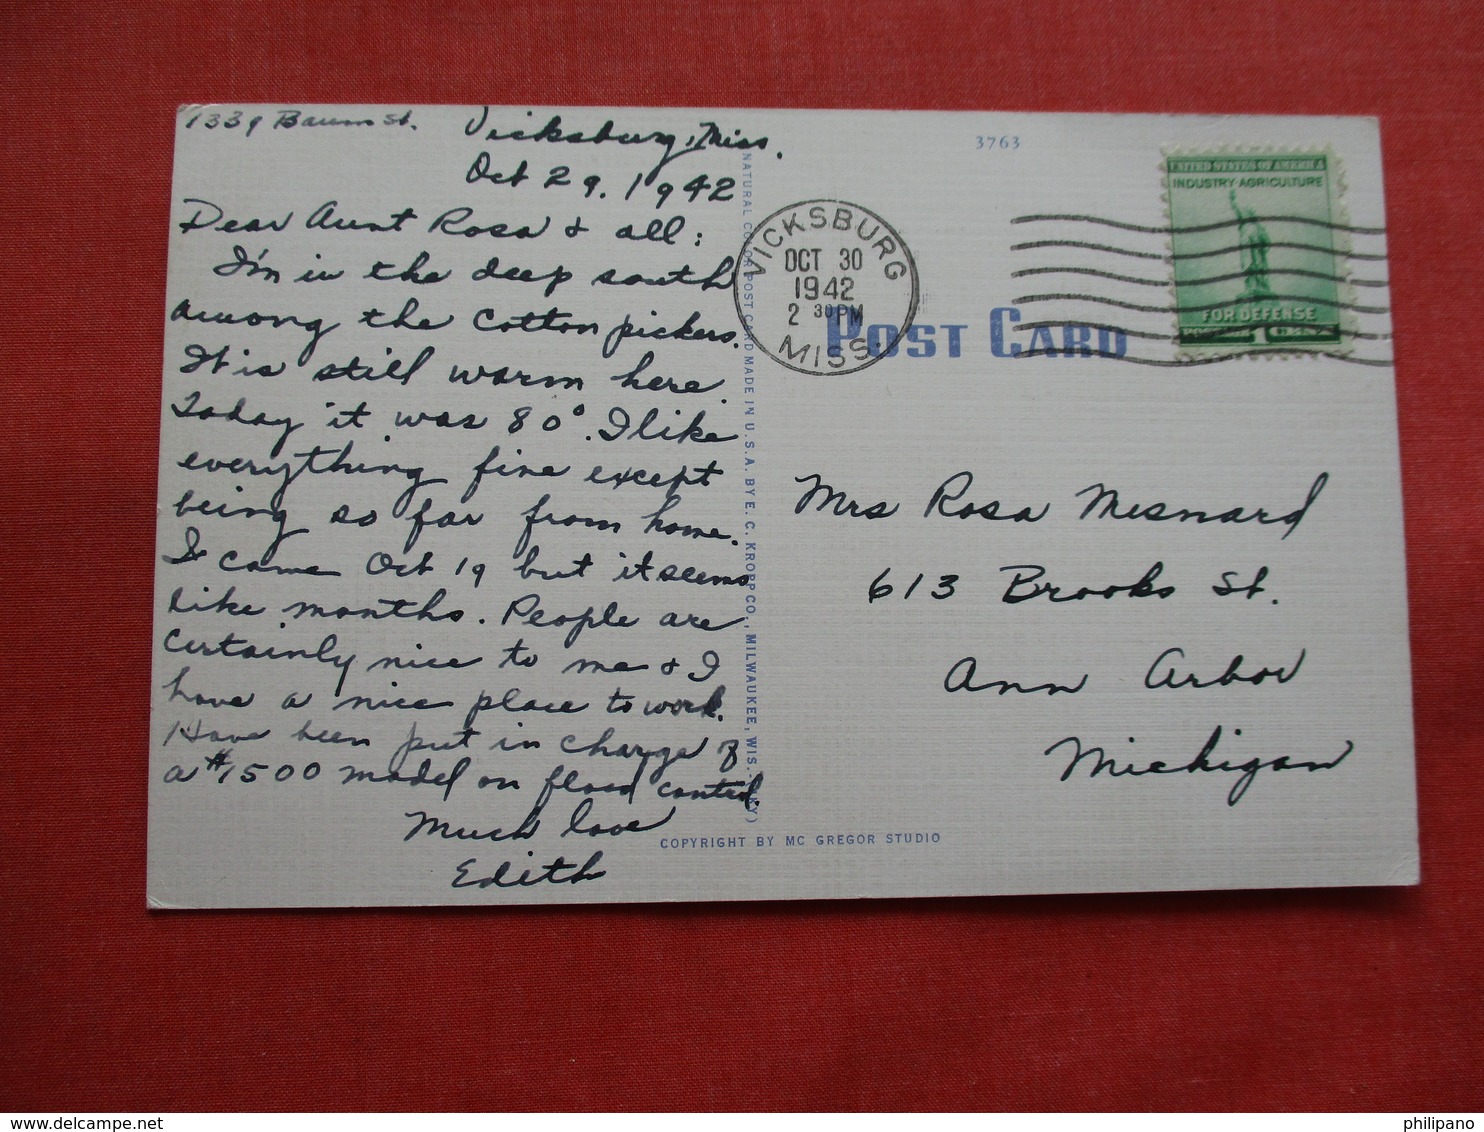 1339 Baum St.
Vicksburg, Miss.
Oct 29, 1942
Dear Aunt Rosa & all:
I'm in the deep south
among the cotton pickers.
It is still warm here.
Today it was 80°. I like
everything fine except
being so far from home.
I came Oct 19 but it seems
like months. People are
certainly nice to me & I
have a nice place to work.
Have been put in charge of
a $1500 model on flood control.
Much love
Edith
NATURAL COLOR POST CARD MADE IN U.S.A. BY E. C. KROPP CO., MILWAUKEE, WIS.
COPYRIGHT BY MC GREGOR STUDIO
3763
POST CARD
VICKSBURG
OCT 30
1942
2 30 PM
MISS.
UNITED STATES OF AMERICA
INDUSTRY-AGRICULTURE
FOR DEFENSE
POSTAGE 1 CENT
Mrs Rosa Mesnard
613 Brooks St.
Ann Arbor
Michigan
www.delcampe.net
philipano